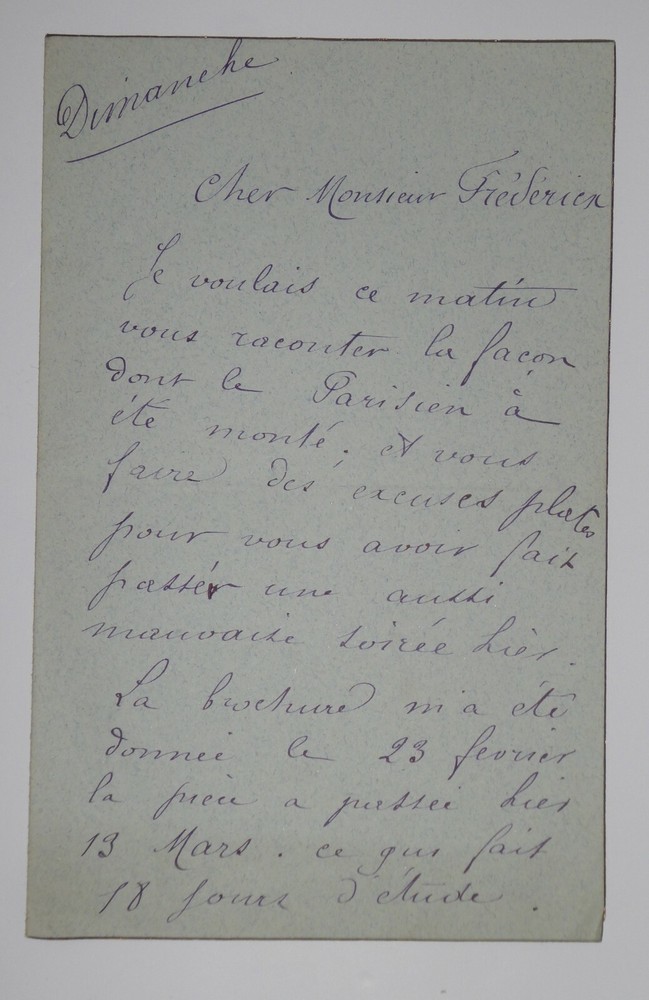 Dimanche
Cher Monsieur Frédérick
Je voulais ce matin
vous raconter la façon
dont le Parisien à
été monté. et vous
faire des excuses plates
pour vous avoir fait
passer une aussi
mauvaise soirée hier.
La brochure m'a été
donnée le 23 fevrier
la pièce a passée hier
13 Mars. ce qui fait
18 jours d'étude.